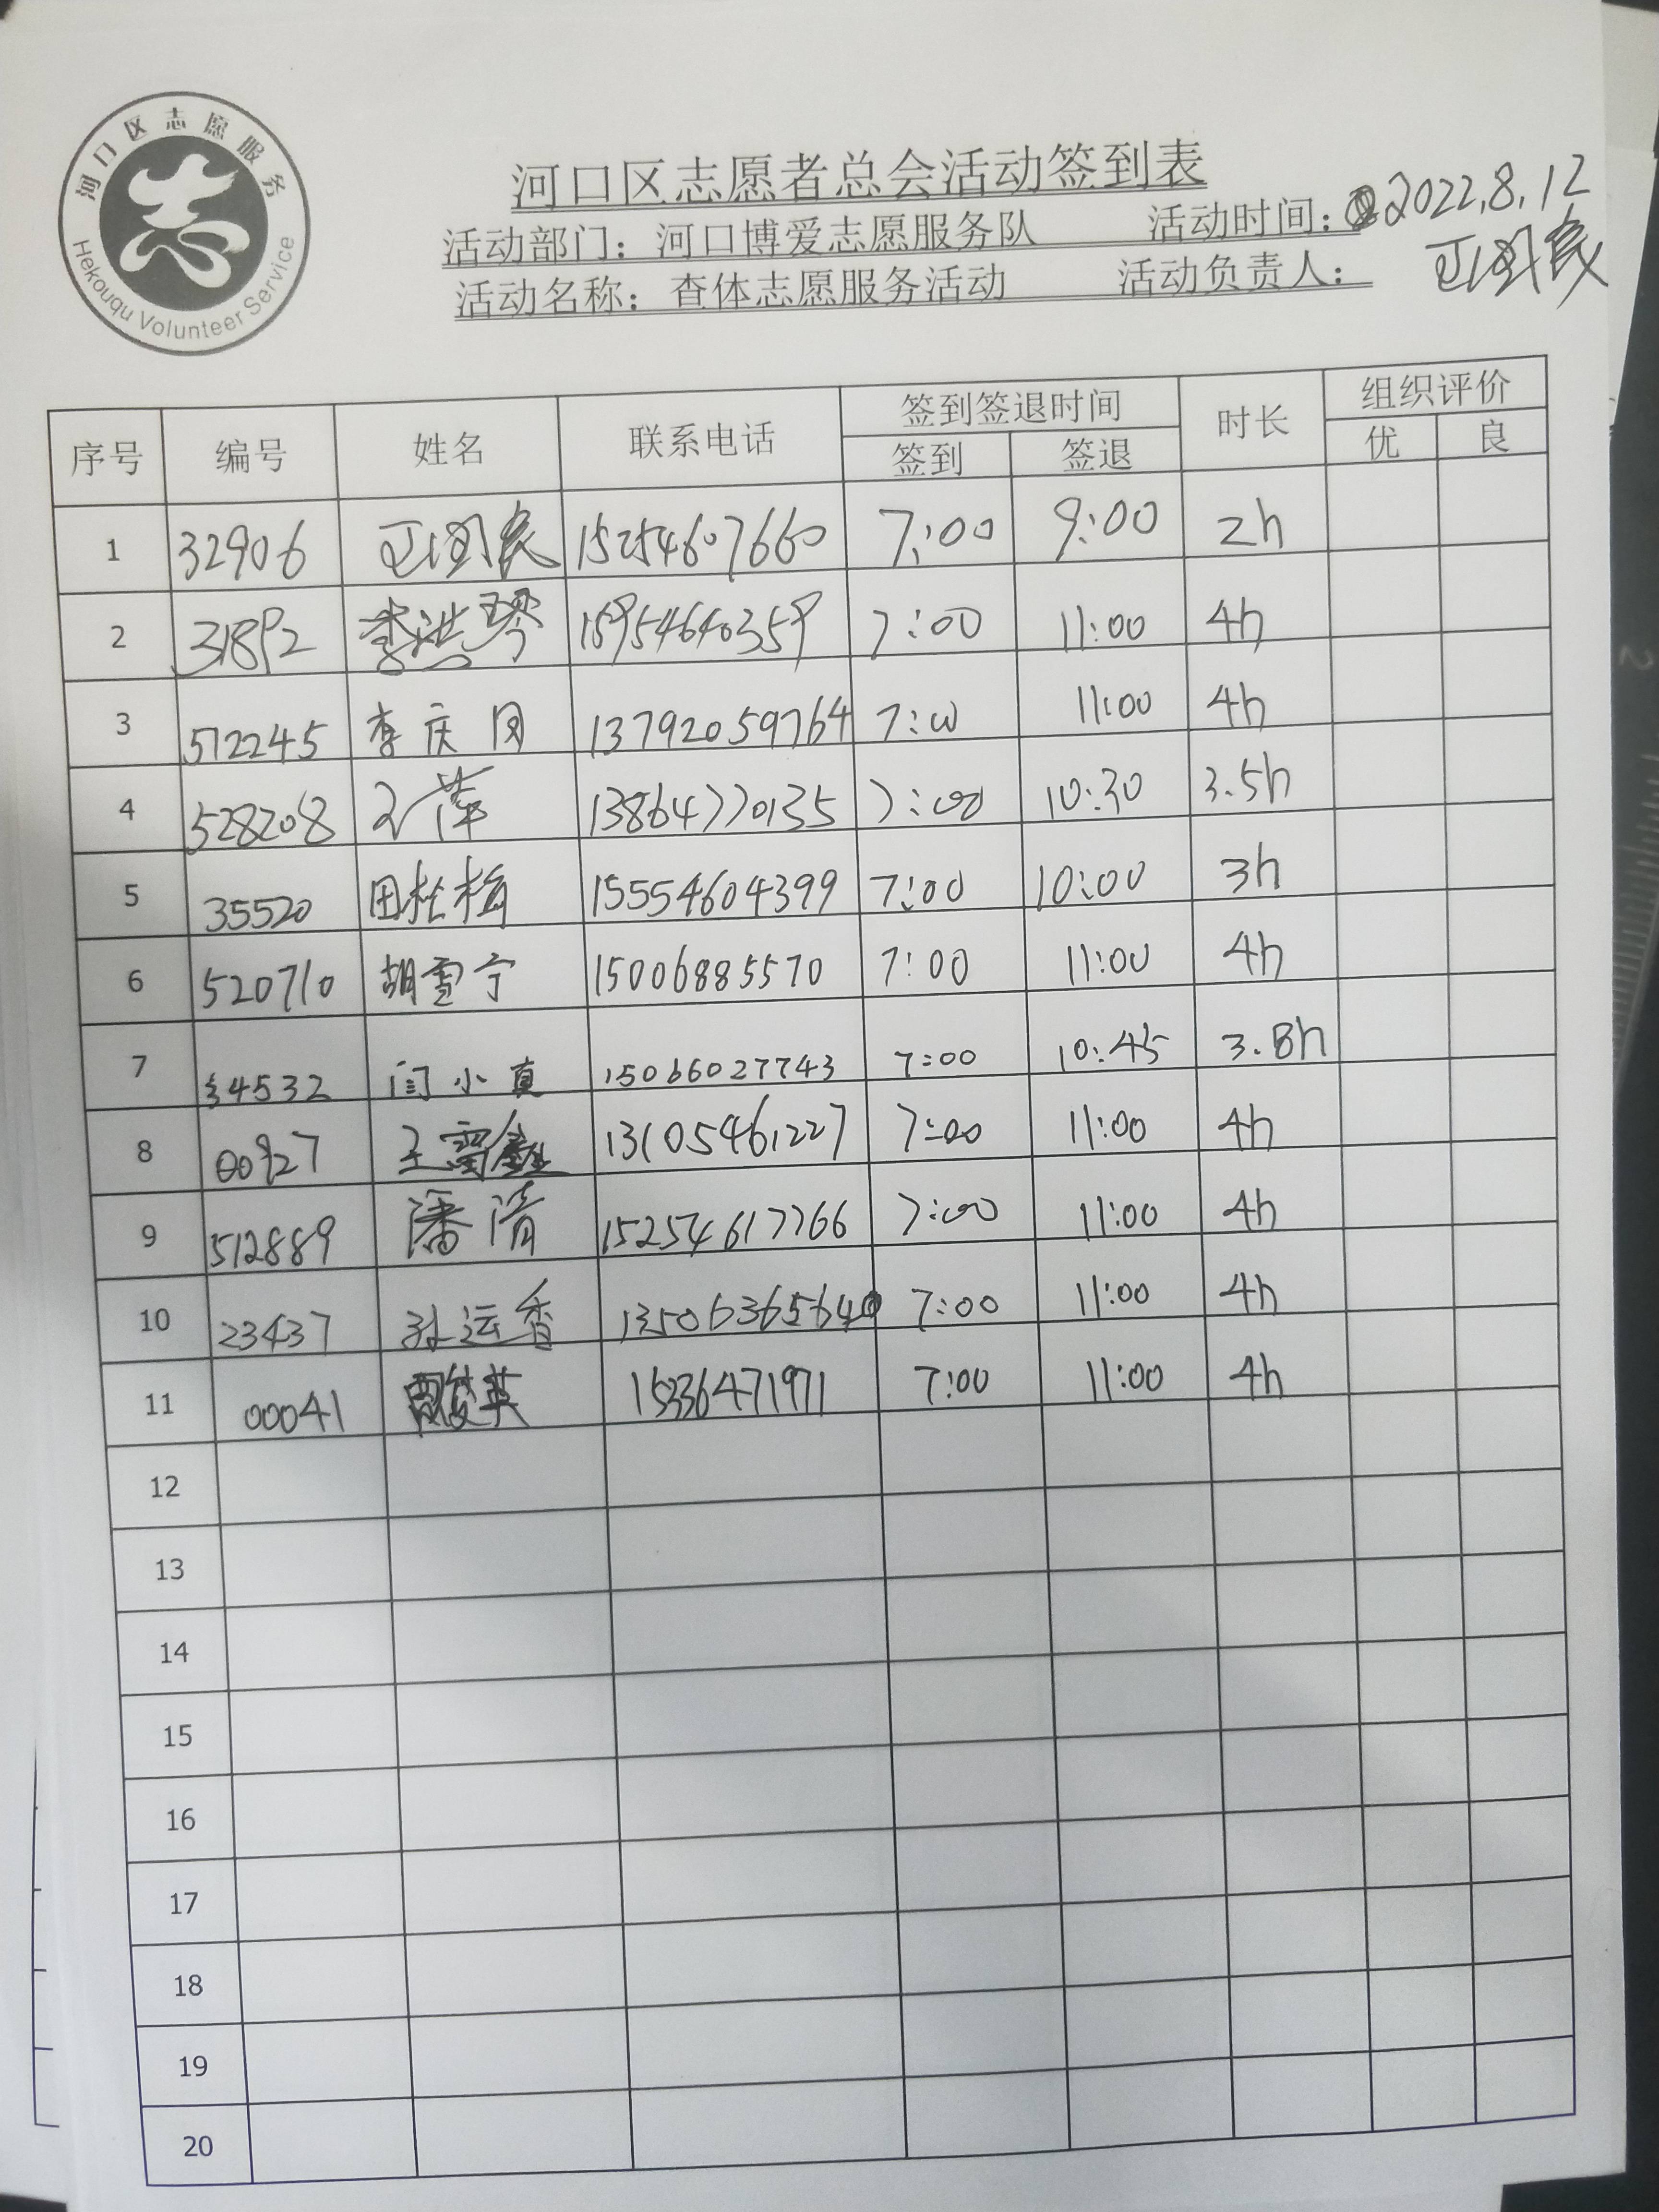 河口区志愿服务
Hekouqu Volunteer Service
河口区志愿者总会活动签到表
活动部门：河口博爱志愿服务队 活动时间：2022.8.12
活动名称：查体志愿服务活动 活动负责人：
序号 编号 姓名 联系电话 签到签退时间 时长 组织评价
签到 签退 优 良
1 32906 15254607660 7:00 9:00 2h
2 31892 李洪琴 15954640359 7:00 11:00 4h
3 512245 李庆 13792059764 7:00 11:00 4h
4 528208 王萍 13864770135 7:00 10:30 3.5h
5 35520 田桂梅 15554604399 7:00 10:00 3h
6 520710 胡雪宁 15006885570 7:00 11:00 4h
7 34532 闫小真 15066027743 7:00 10:45 3.8h
8 00927 王 13105461227 7:00 11:00 4h
9 512889 潘清 15254617766 7:00 11:00 4h
10 23437 孙运香 13506365640 7:00 11:00 4h
11 00041 15336471971 7:00 11:00 4h
12
13
14
15
16
17
18
19
20